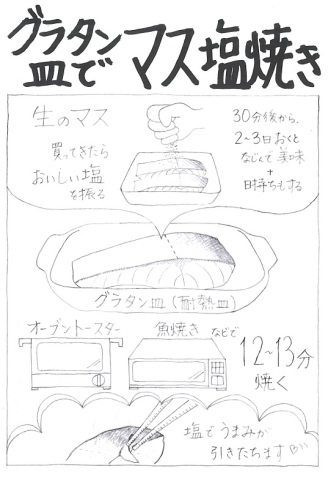 グラタン
皿で
マス塩焼き
生のマス
買ってきたら
おいしい塩
を振る
30分後から、
2~3日おくと
なじんで美味
+
日持ちもする
グラタン皿(耐熱皿)
オーブントースター
魚焼き などで
12~13分
焼く
塩でうまみが
引きたちます♡